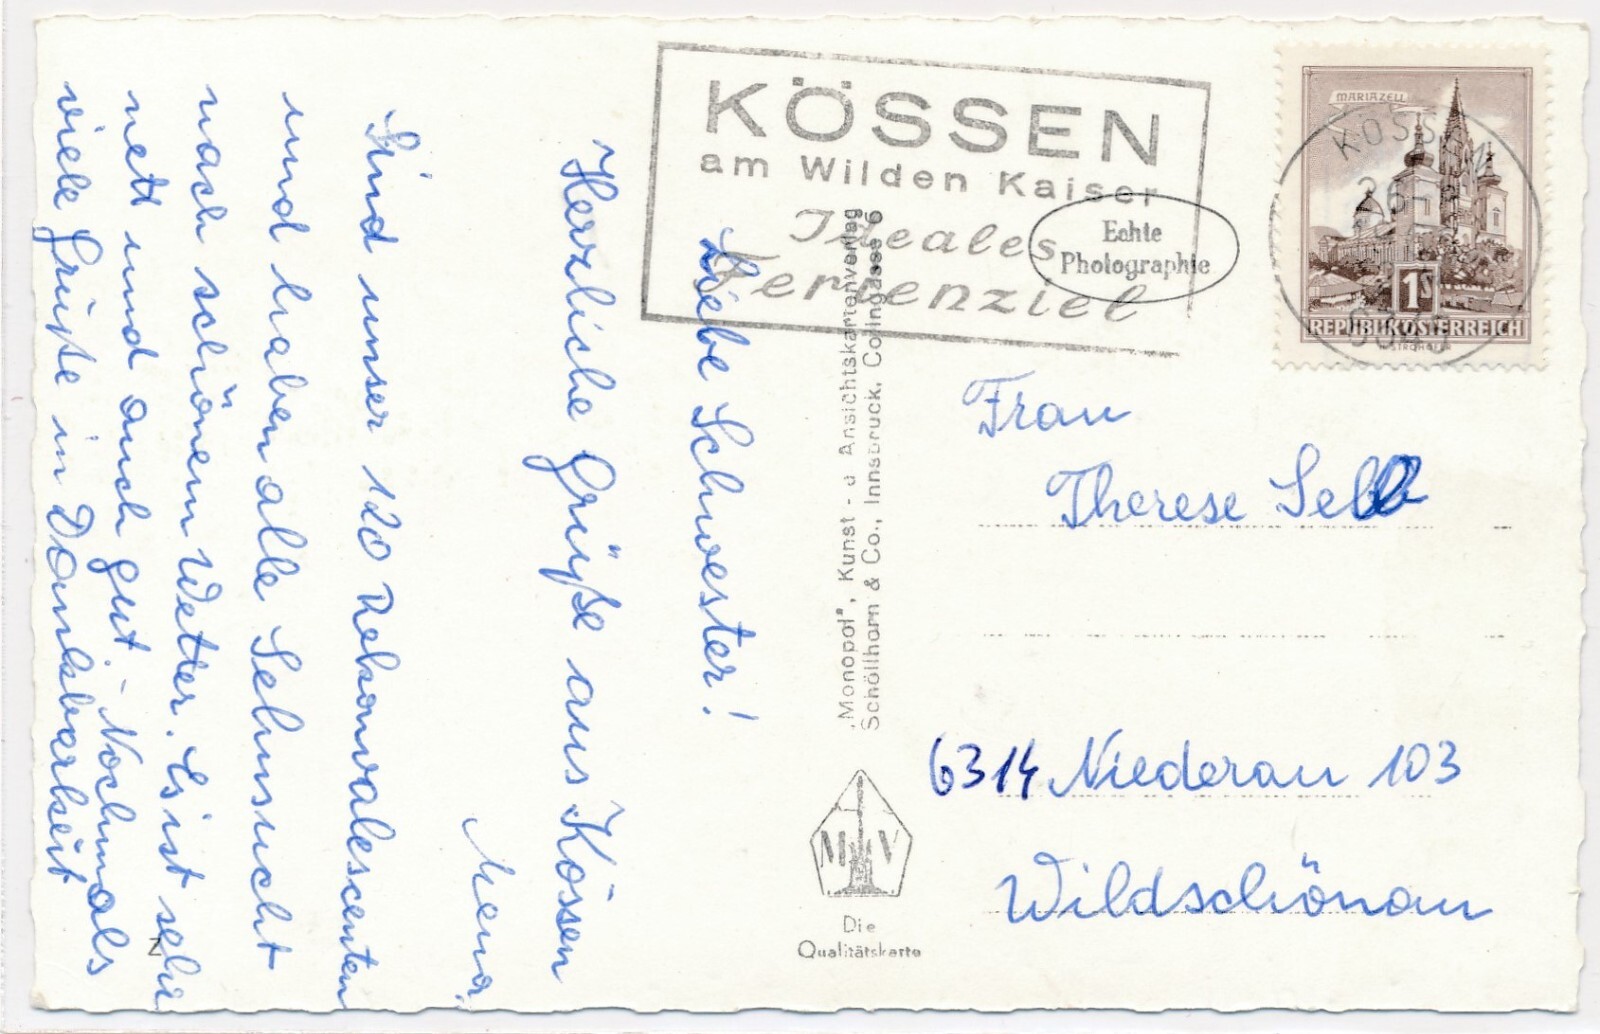 KÖSSEN
am Wilden Kaiser
Ideales
Ferienziel
Echte
Photographie
MARIAZELL
1S
REPUBLIK ÖSTERREICH
Liebe Schwester!
Herzliche Grüße aus Kössen
Sind unser 120 Rekonvalescenten
und haben alle Sehnsucht
nach schönem Wetter. Es ist sehr
nett und auch gut. Nochmals
viele Grüße in Dankbarkeit
„Monopol", Kunst- u Ansichtskartenverlag
Schöllhorn & Co., Innsbruck, Colingasse 6
M V
Die
Qualitätskarte
Z
Frau
Therese
6314 Niederau 103
Wildschönau